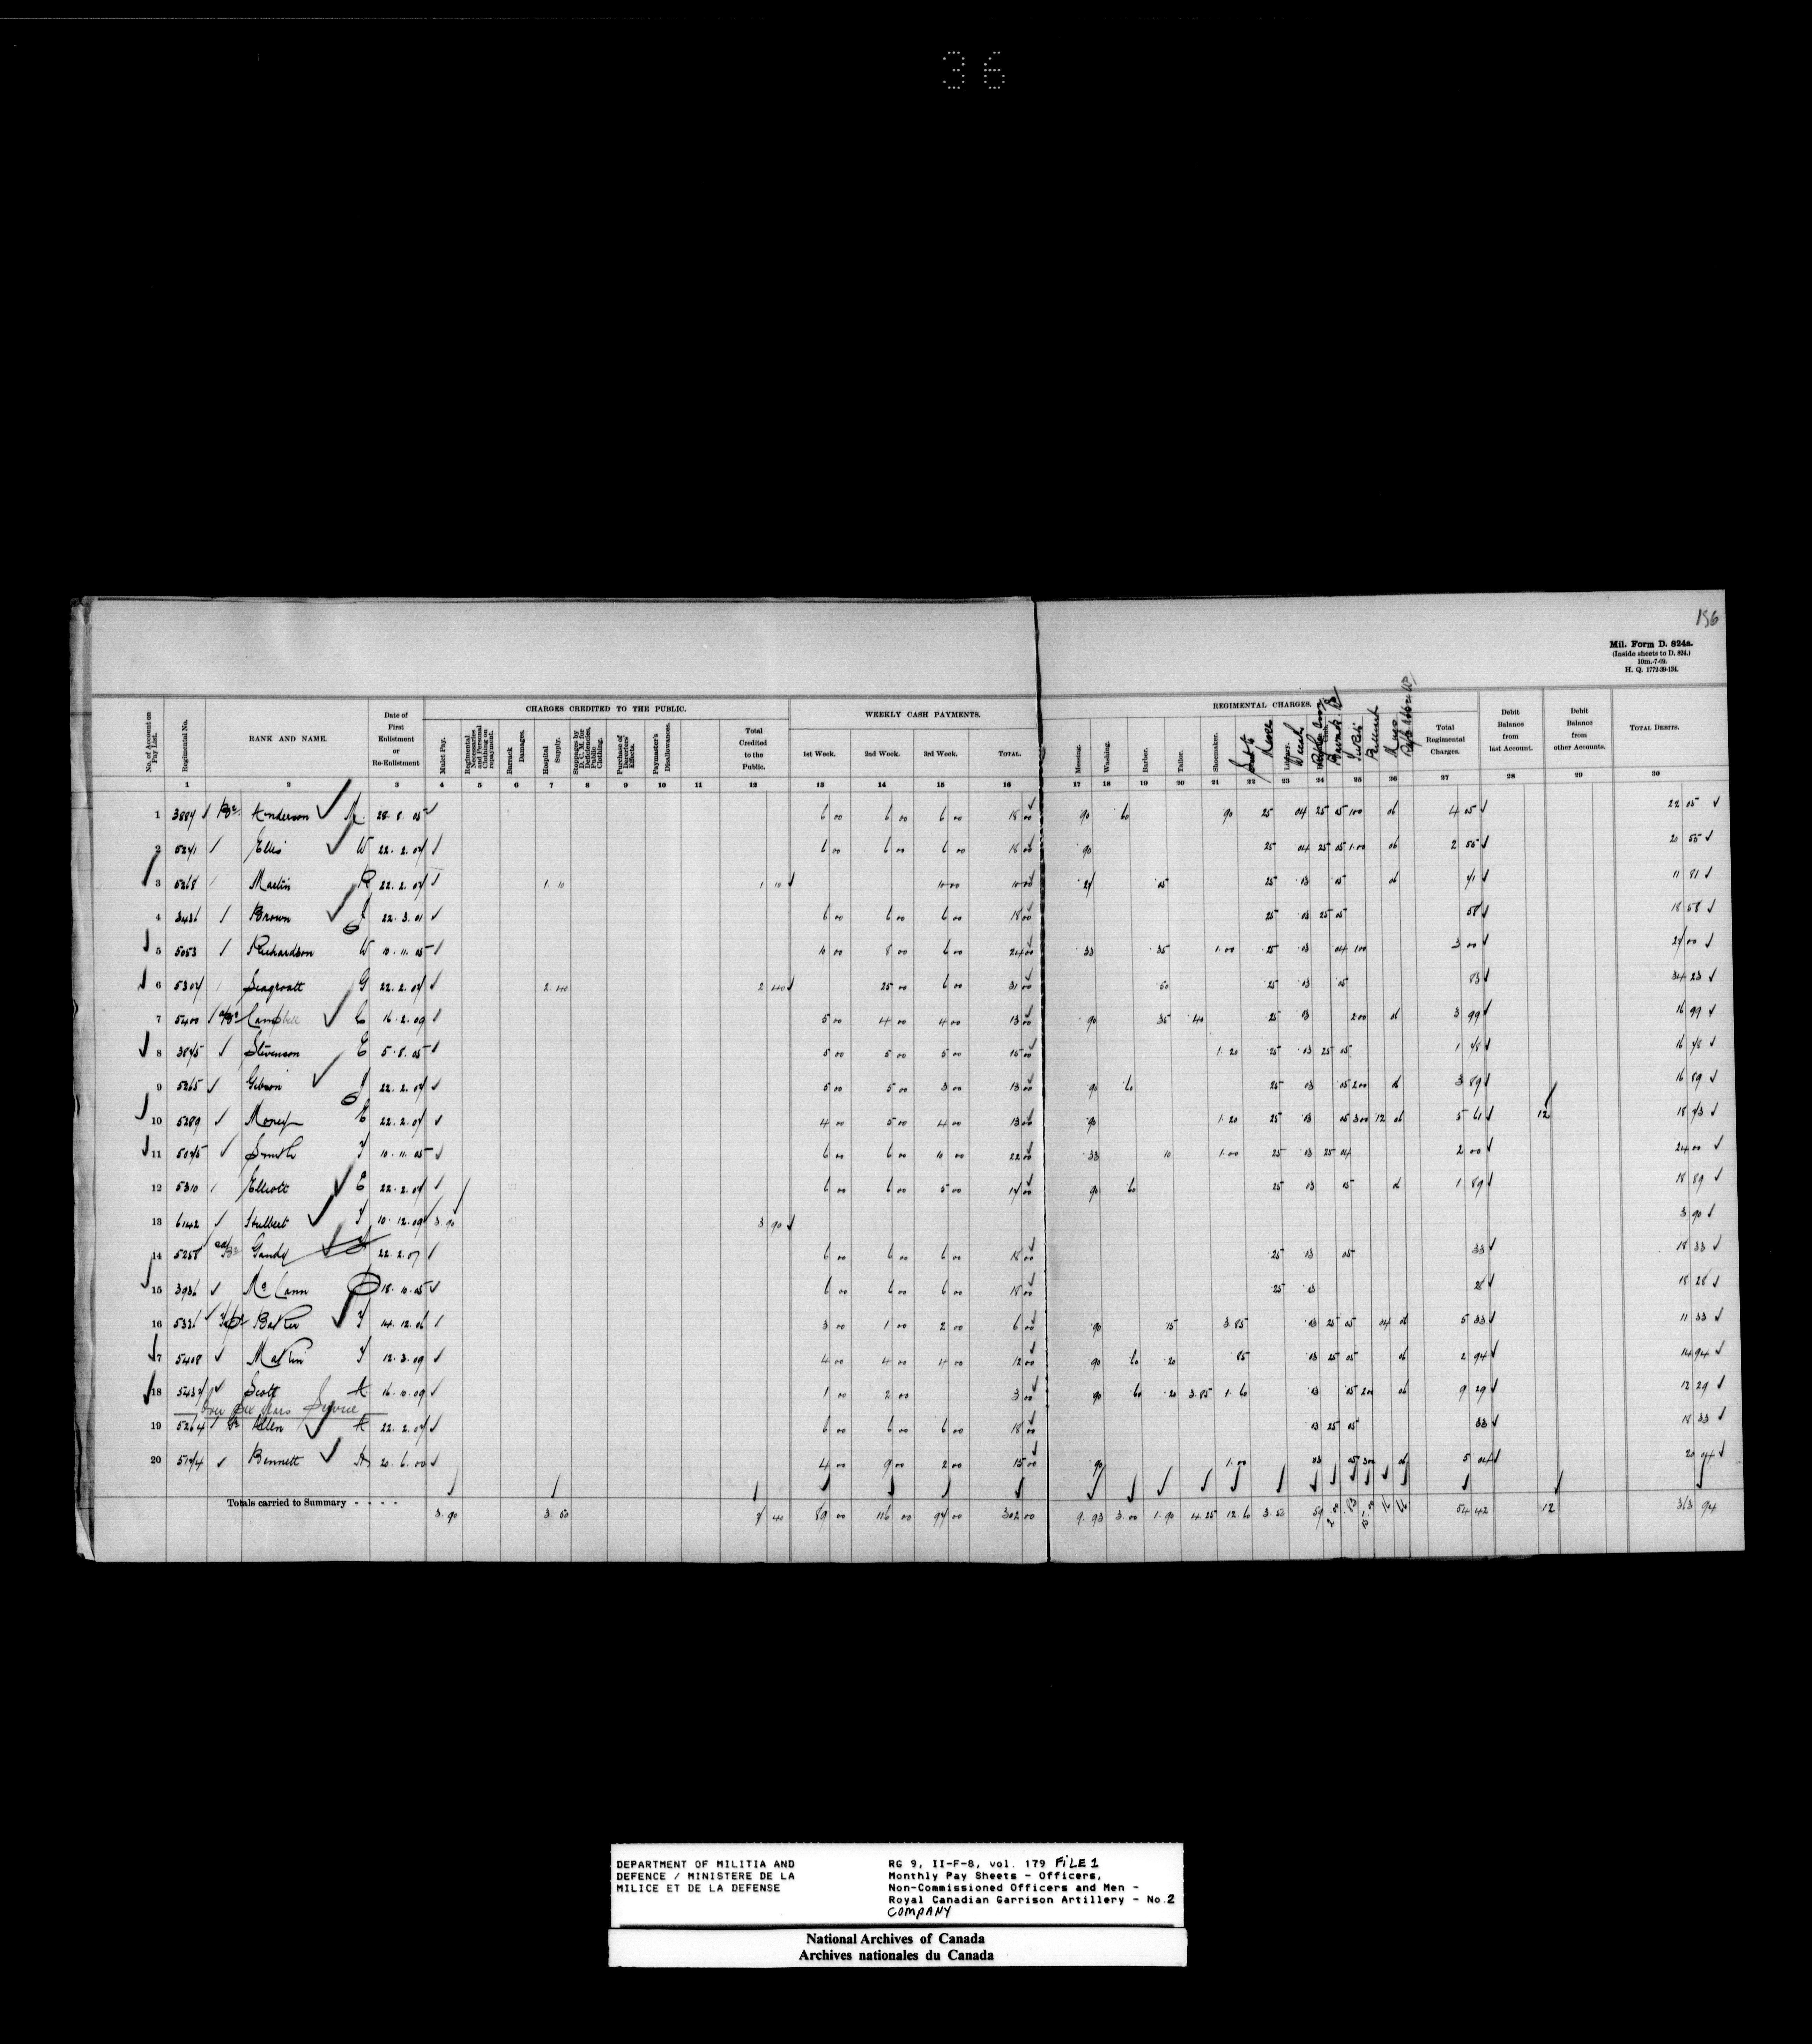 36
156
Mil. Form D. 824a.
(Inside sheets to D. 824.)
10m.-7-09.
H. Q. 1772-39-134.
CHARGES CREDITED TO THE PUBLIC.
WEEKLY CASH PAYMENTS.
REGIMENTAL CHARGES.
No. of Account on Pay List.
Regimental No.
RANK AND NAME.
Date of First Enlistment or Re-Enlistment
Mulct Pay.
Regimental Necessaries and Personal Clothing on repayment.
Barrack Damages.
Hospital Supply.
Stoppages by D. C. M. for Deficiencies, Public Clothing.
Purchase of Deserters' Effects.
Paymaster's Disallowances.
Total Credited to the Public.
1st Week.
2nd Week.
3rd Week.
TOTAL.
Messing.
Washing.
Barber.
Tailor.
Shoemaker.
Library.
Total Regimental Charges.
Debit Balance from last Account.
Debit Balance from other Accounts.
TOTAL DEBITS.
1 2 3 4 5 6 7 8 9 10 11 12 13 14 15 16 17 18 19 20 21 22 23 24 25 26 27 28 29 30
1 3884 Br Anderson 28. 8. 05 6 00 6 00 6 00 18 00 90 60 90 25 04 25 05 1 00 06 4 05 22 05
2 5241 Ellis W 22. 2. 07 6 00 6 00 6 00 18 00 90 25 04 25 05 1.00 06 2 55 20 55
3 5268 Martin R 22. 2. 07 1 10 1 10 10 00 10 00 05 25 03 05 06 71 11 81
4 3436 Brown J 22. 3. 01 6 00 6 00 6 00 18 00 25 03 25 05 58 18 58
5 5053 Richardson W 10. 11. 05 10 00 8 00 6 00 24 00 33 35 1.00 25 03 04 1 00 3 00 27 00
6 5307 Seagroatt G 22. 2. 07 2 40 2 40 25 00 6 00 31 00 50 25 03 05 83 34 23
7 5400 Campbell C 16. 2. 09 5 00 4 00 4 00 13 00 90 35 40 25 03 2 00 06 3 99 16 99
8 3875 Stevenson E 5. 8. 05 5 00 5 00 5 00 15 00 1. 20 25 03 25 05 1 78 16 78
9 5265 Gibson J 22. 2. 07 5 00 5 00 3 00 13 00 90 60 25 03 05 2 00 06 3 89 16 89
10 5289 E 22. 2. 07 4 00 5 00 4 00 13 00 90 1. 20 25 03 05 3 00 12 06 5 61 12 18 73
11 5075 Smith T 10. 11. 05 6 00 6 00 10 00 22 00 33 10 1.00 25 03 25 04 2 00 24 00
12 5310 Elliott E 22. 2. 07 6 00 6 00 5 00 17 00 90 60 25 03 05 06 1 89 18 89
13 6142 Hulbert T 10. 12. 09 3. 90 3 90 3 90
14 5258 Gandy 22. 2. 07 6 00 6 00 6 00 18 00 25 03 05 33 18 33
15 3936 McCann 18. 10. 05 6 00 6 00 6 00 18 00 25 03 28 18 28
16 5326 Baker T 14. 12. 06 3 00 1 00 2 00 6 00 90 15 3.85 03 25 05 04 06 5 33 11 33
17 5408 T 12. 3. 09 4 00 4 00 4 00 12 00 90 60 20 85 03 25 05 06 2 94 14 94
18 5437 Scott A 16. 10. 09 1 00 2 00 3 00 90 60 20 3.85 1. 60 03 05 2 00 06 9 29 12 29
Over Six Years Service
19 5264 Gr Allen A 22. 2. 07 6 00 6 00 6 00 18 00 03 25 05 33 18 33
20 5174 Bennett 20. 6. 00 4 00 9 00 2 00 15 00 90 1.00 03 05 3 00 06 5 04 20 04
Totals carried to Summary - - - - 3. 90 3. 50 7 40 89 00 116 00 97 00 302 00 9. 93 3. 00 1. 90 4. 25 12. 60 3. 50 59 54 42 12 363 94
DEPARTMENT OF MILITIA AND
DEFENCE / MINISTERE DE LA
MILICE ET DE LA DEFENSE
RG 9, II-F-8, vol. 179 FiLE 1
Monthly Pay Sheets - Officers,
Non-Commissioned Officers and Men -
Royal Canadian Garrison Artillery - No.2
COMPANY
National Archives of Canada
Archives nationales du Canada